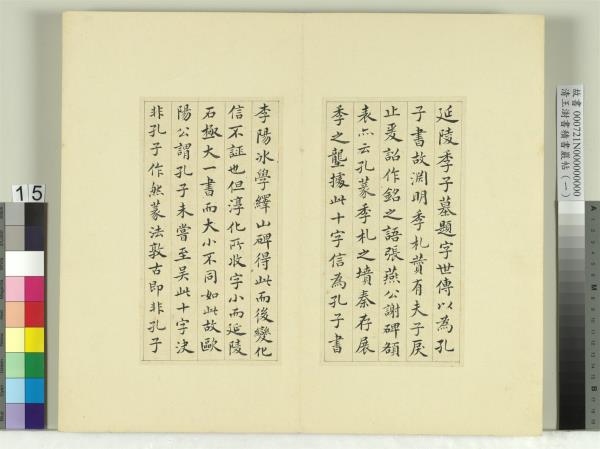 延陵季子墓題字世傳以為孔
子書故淵明季札贊有夫子戾
止爰詔作銘之語張燕公謝碑額
表亦云孔篆季札之墳秦存展
季之壟據此十字信為孔子書
李陽冰學繹山碑得此而後變化
信不誣也但淳化所收字小而延陵
石極大一書而大小不同如此故歐
陽公謂孔子未嘗至吳此十字決
非孔子作然篆法敦古即非孔子
故書 000721N000000000
清王澍書積書巖帖(一)
15